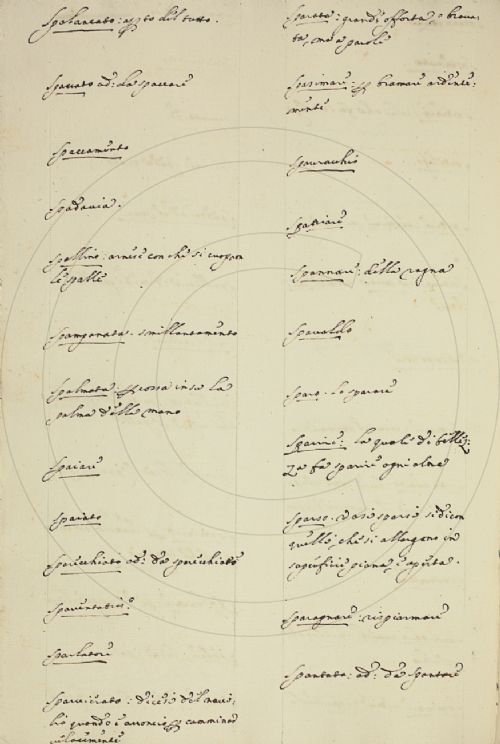 Spalancato: apto del tutto.
Spaccato ad: da spaccare
Spaccamento
Spadaccia.
Spallino: arnese con che si cuopron
le spalle
Spampanata. smillantamento
Spalmata. percossa in su la
palma della mano
Spaiare
Spaiato
Sparecchiato ad: da sparecchiare
Spaventatrice
Sparlatore
Sparvierato: dicesi del navi-
lio quando è acconcio per camminar
velocemente
Sparata: grande offerta, o brava-
ta, ma a parole
Spasimare: per bramare ardente-
mente
Spauracchio
Spatriare
Spannare: della ragna
Spavaldo
Sparo. lo sparare
Sparire: la quale di bellez-
za fa sparire ogni altra
Sparso. vasi sparsi si dicon
quelli, che si allargono in
superficie piana, e aperta.
Sparagnare: risparmiare
Spantato: ad: da spantare